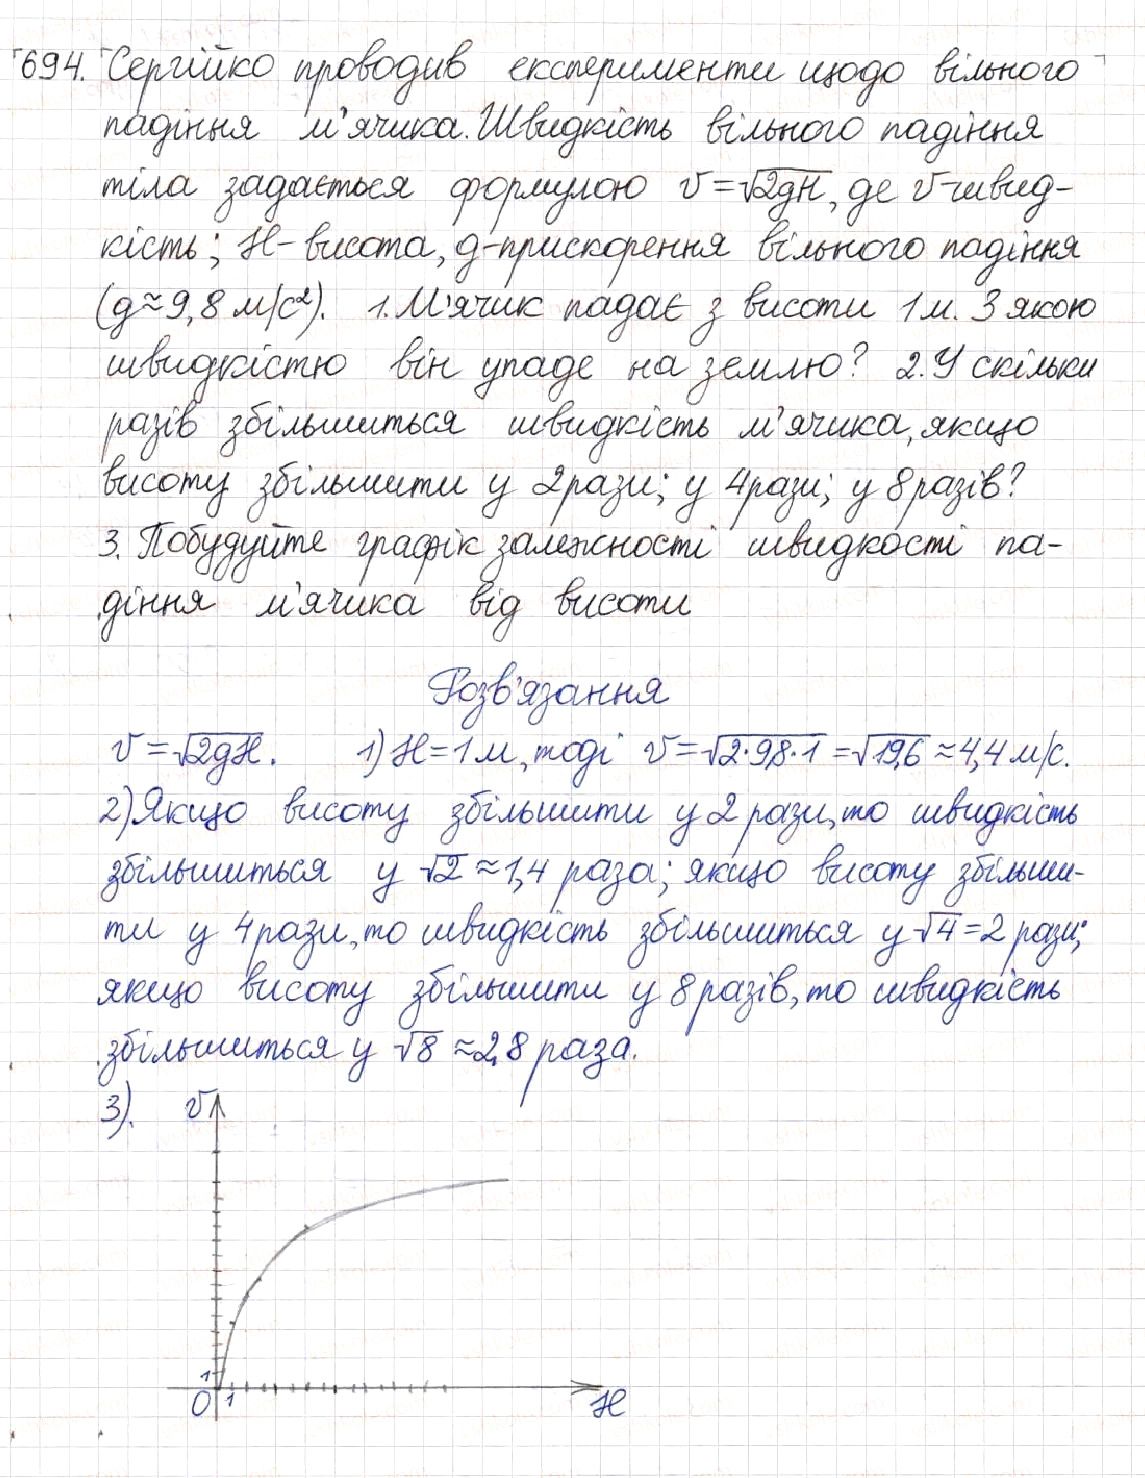 694. Сергійко проводив експерименти щодо вільного
падіння м'ячика. Швидкість вільного падіння
тіла задається формулою v=√2gH, де v-швид-
кість; H-висота, g-прискорення вільного падіння
(g≈9,8 м/с²). 1. М'ячик падає з висоти 1 м. З якою
швидкістю він упаде на землю? 2. У скільки
разів збільшиться швидкість м'ячика, якщо
висоту збільшити у 2 рази; у 4 рази; у 8 разів?
3. Побудуйте графік залежності швидкості па-
діння м'ячика від висоти
Розв'язання
v=√2gH. 1) H=1 м, тоді v=√2·9,8·1=√19,6≈4,4 м/с.
2) Якщо висоту збільшити у 2 рази, то швидкість
збільшиться у √2≈1,4 раза; якщо висоту збільши-
ти у 4 рази, то швидкість збільшиться у √4=2 рази;
якщо висоту збільшити у 8 разів, то швидкість
збільшиться у √8≈2,8 раза.
3). v
1
0 1 H